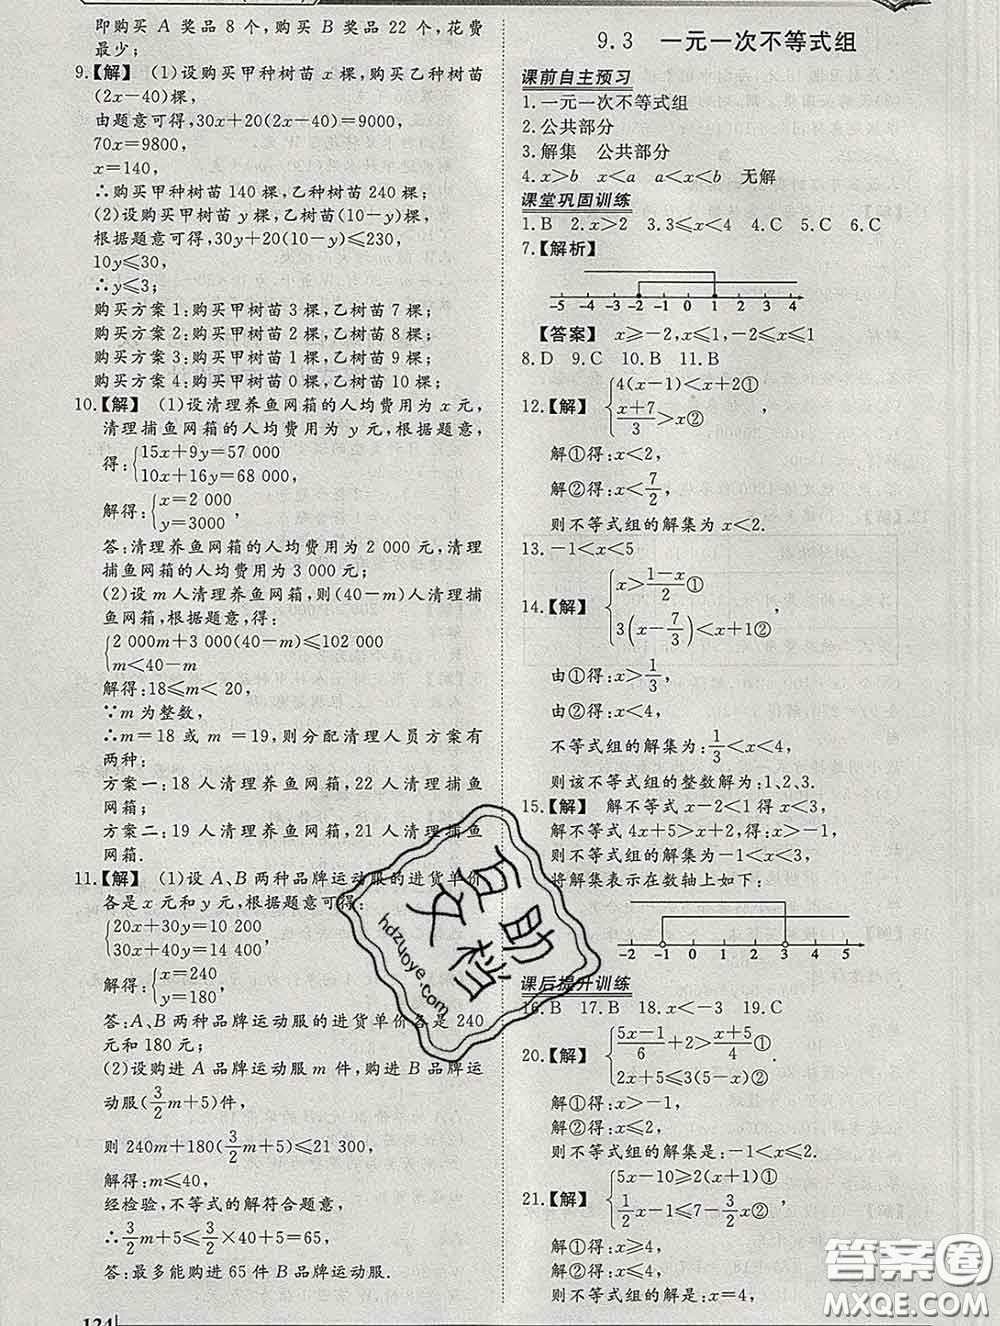 即购买 A 奖品 8 个,购买 B 奖品 22 个,花费
最少;
9.【解】 (1)设购买甲种树苗 x 棵,购买乙种树苗
(2x-40)棵,
由题意可得,30x+20(2x-40)=9000,
70x=9800,
x=140,
∴购买甲种树苗 140 棵,乙种树苗 240 棵;
(2)设购买甲树苗 y 棵,乙树苗(10-y)棵,
根据题意可得,30y+20(10-y)≤230,
10y≤30,
∴y≤3;
购买方案 1:购买甲树苗 3 棵,乙树苗 7 棵;
购买方案 2:购买甲树苗 2 棵,乙树苗 8 棵;
购买方案 3:购买甲树苗 1 棵,乙树苗 9 棵;
购买方案 4:购买甲树苗 0 棵,乙树苗 10 棵;
10.【解】 (1)设清理养鱼网箱的人均费用为 x 元,
清理捕鱼网箱的人均费用为 y 元,根据题意,
得:{15x+9y=57 000
10x+16y=68 000,
解得:{x=2 000
y=3000,
答:清理养鱼网箱的人均费用为 2 000 元,清理
捕鱼网箱的人均费用为 3 000 元;
(2)设 m 人清理养鱼网箱,则(40-m)人清理捕
鱼网箱,根据题意,得:
{2 000m+3 000(40-m)≤102 000
m<40-m
解得:18≤m< 20,
∵m 为整数,
∴m=18 或 m =19,则分配清理人员方案有
两种:
方案一:18 人清理养鱼网箱,22 人清理捕鱼
网箱;
方案二:19 人清理养鱼网箱,21 人清理捕鱼
网箱.
11.【解】 (1)设 A、B 两种品牌运动服的进货单价
各是 x 元和 y 元,根据题意可得:
{20x+30y=10 200
30x+40y=14 400,
解得:{x=240
y=180,
答:A、B 两种品牌运动服的进货单价各是 240
元和 180 元;
(2)设购进 A 品牌运动服 m 件,购进 B 品牌运
动服(3/2m+5)件,
则 240m+180(3/2m+5)≤21 300,
解得:m≤40,
经检验,不等式的解符合题意,
∴3/2m+5≤3/2×40+5=65,
答:最多能购进 65 件 B 品牌运动服.
124
9.3 一元一次不等式组
课前自主预习
1.一元一次不等式组
2.公共部分
3.解集 公共部分
4.x>b x<a a<x<b 无解
课堂巩固训练
1.B 2.x>2 3.3≤x<4 4.C 5.C 6.C
7.【解析】
-5 -4 -3 -2 -1 0 1 2 3 4
【答案】 x≥-2,x≤1,-2≤x≤1
8.D 9.C 10.B 11.B
12.【解】 {4(x-1)<x+2①
(x+7)/3>x②,
解①得:x<2,
解②得:x<7/2,
则不等式组的解集为 x<2.
13.-1<x<5
14.【解】 {x>(1-x)/2①
3(x-7/3)<x+1②,
由①得:x>1/3,
由②得:x<4,
不等式组的解集为:1/3<x<4,
则该不等式组的整数解为:1、2、3.
15.【解】 解不等式 x-2<1 得 x<3,
解不等式 4x+5>x+2,得:x>-1,
则不等式组的解集为-1<x<3,
将解集表示在数轴上如下:
-2 -1 0 1 2 3 4 5
课后提升训练
16.B 17.B 18.x<-3 19.C
20.【解】 {(5x-1)/6+2>(x+5)/4①
2x+5≤3(5-x)②,
解①得:x>-1,
解②得:x≤2,
不等式组的解集是:-1<x≤2,
21.【解】 {5x-10≥2(x+1)①
1/2x-1≤7-3/2x②,
解①得:x≥4,
解②得:x≤4,
则不等式组的解集是:x=4,
互助文档
hdzuoye.com
答案圈
MXQE.COM